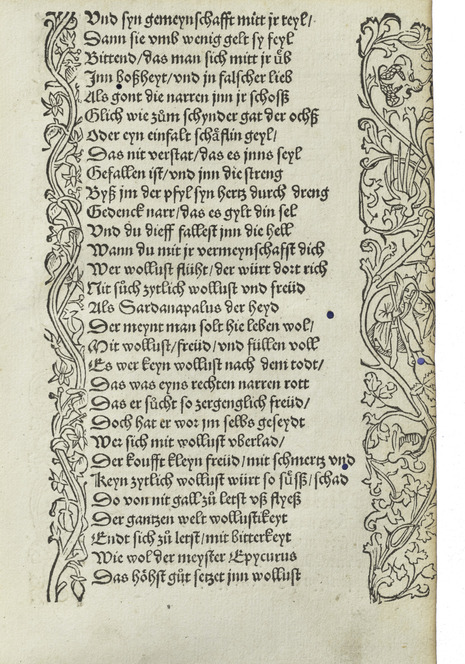 Vnd syn gemeynschafft mitt jr teyl/
Dann sie vmb wenig gelt sy feyl
Bittend/das man sich mitt jr uͤb
Jnn boßheyt/vnd jn falscher lieb
Als gont die narren jnn jr schosß
Glich wie zuͦm schynder gat der ochß
Oder eyn einfalt schäflin geyl/
Das nit verstat/das es jnns seyl
Gefallen ist/vnd jnn die streng
Byß jm der pfyl syn hertz durch dreng
Gedenck narr/das es gylt din sel
Vnd du dieff fallest jnn die hell
Wann du mit jr vermeynschafft dich
Wer wollust flüht/der würt dort rich
Nit suͦch zytlich wollust vnd freüd
Als Sardanapalus der heyd
Der meynt man solt hie leben wol/
Mit wollust/freüd/vnd füllen voll
Es wer keyn wollust nach dem todt/
Das was eyns rechten narren rott
Das er suͦcht so zergenglich freüd/
Doch hat er wor jm selbs geseydt
Wer sich mit wollust vberlad/
Der koufft kleyn freüd/mit schmertz vnd
Keyn zytlich wollust würt so süsß/ schad
Do von nit gall zuͦ letst vß flyeß
Der gantzen welt wollustikeyt
Endt sich zuͦ letst/mit bitterkeyt
Wie wol der meyster Epycurus
Das höhst guͦt setzet jnn wollust